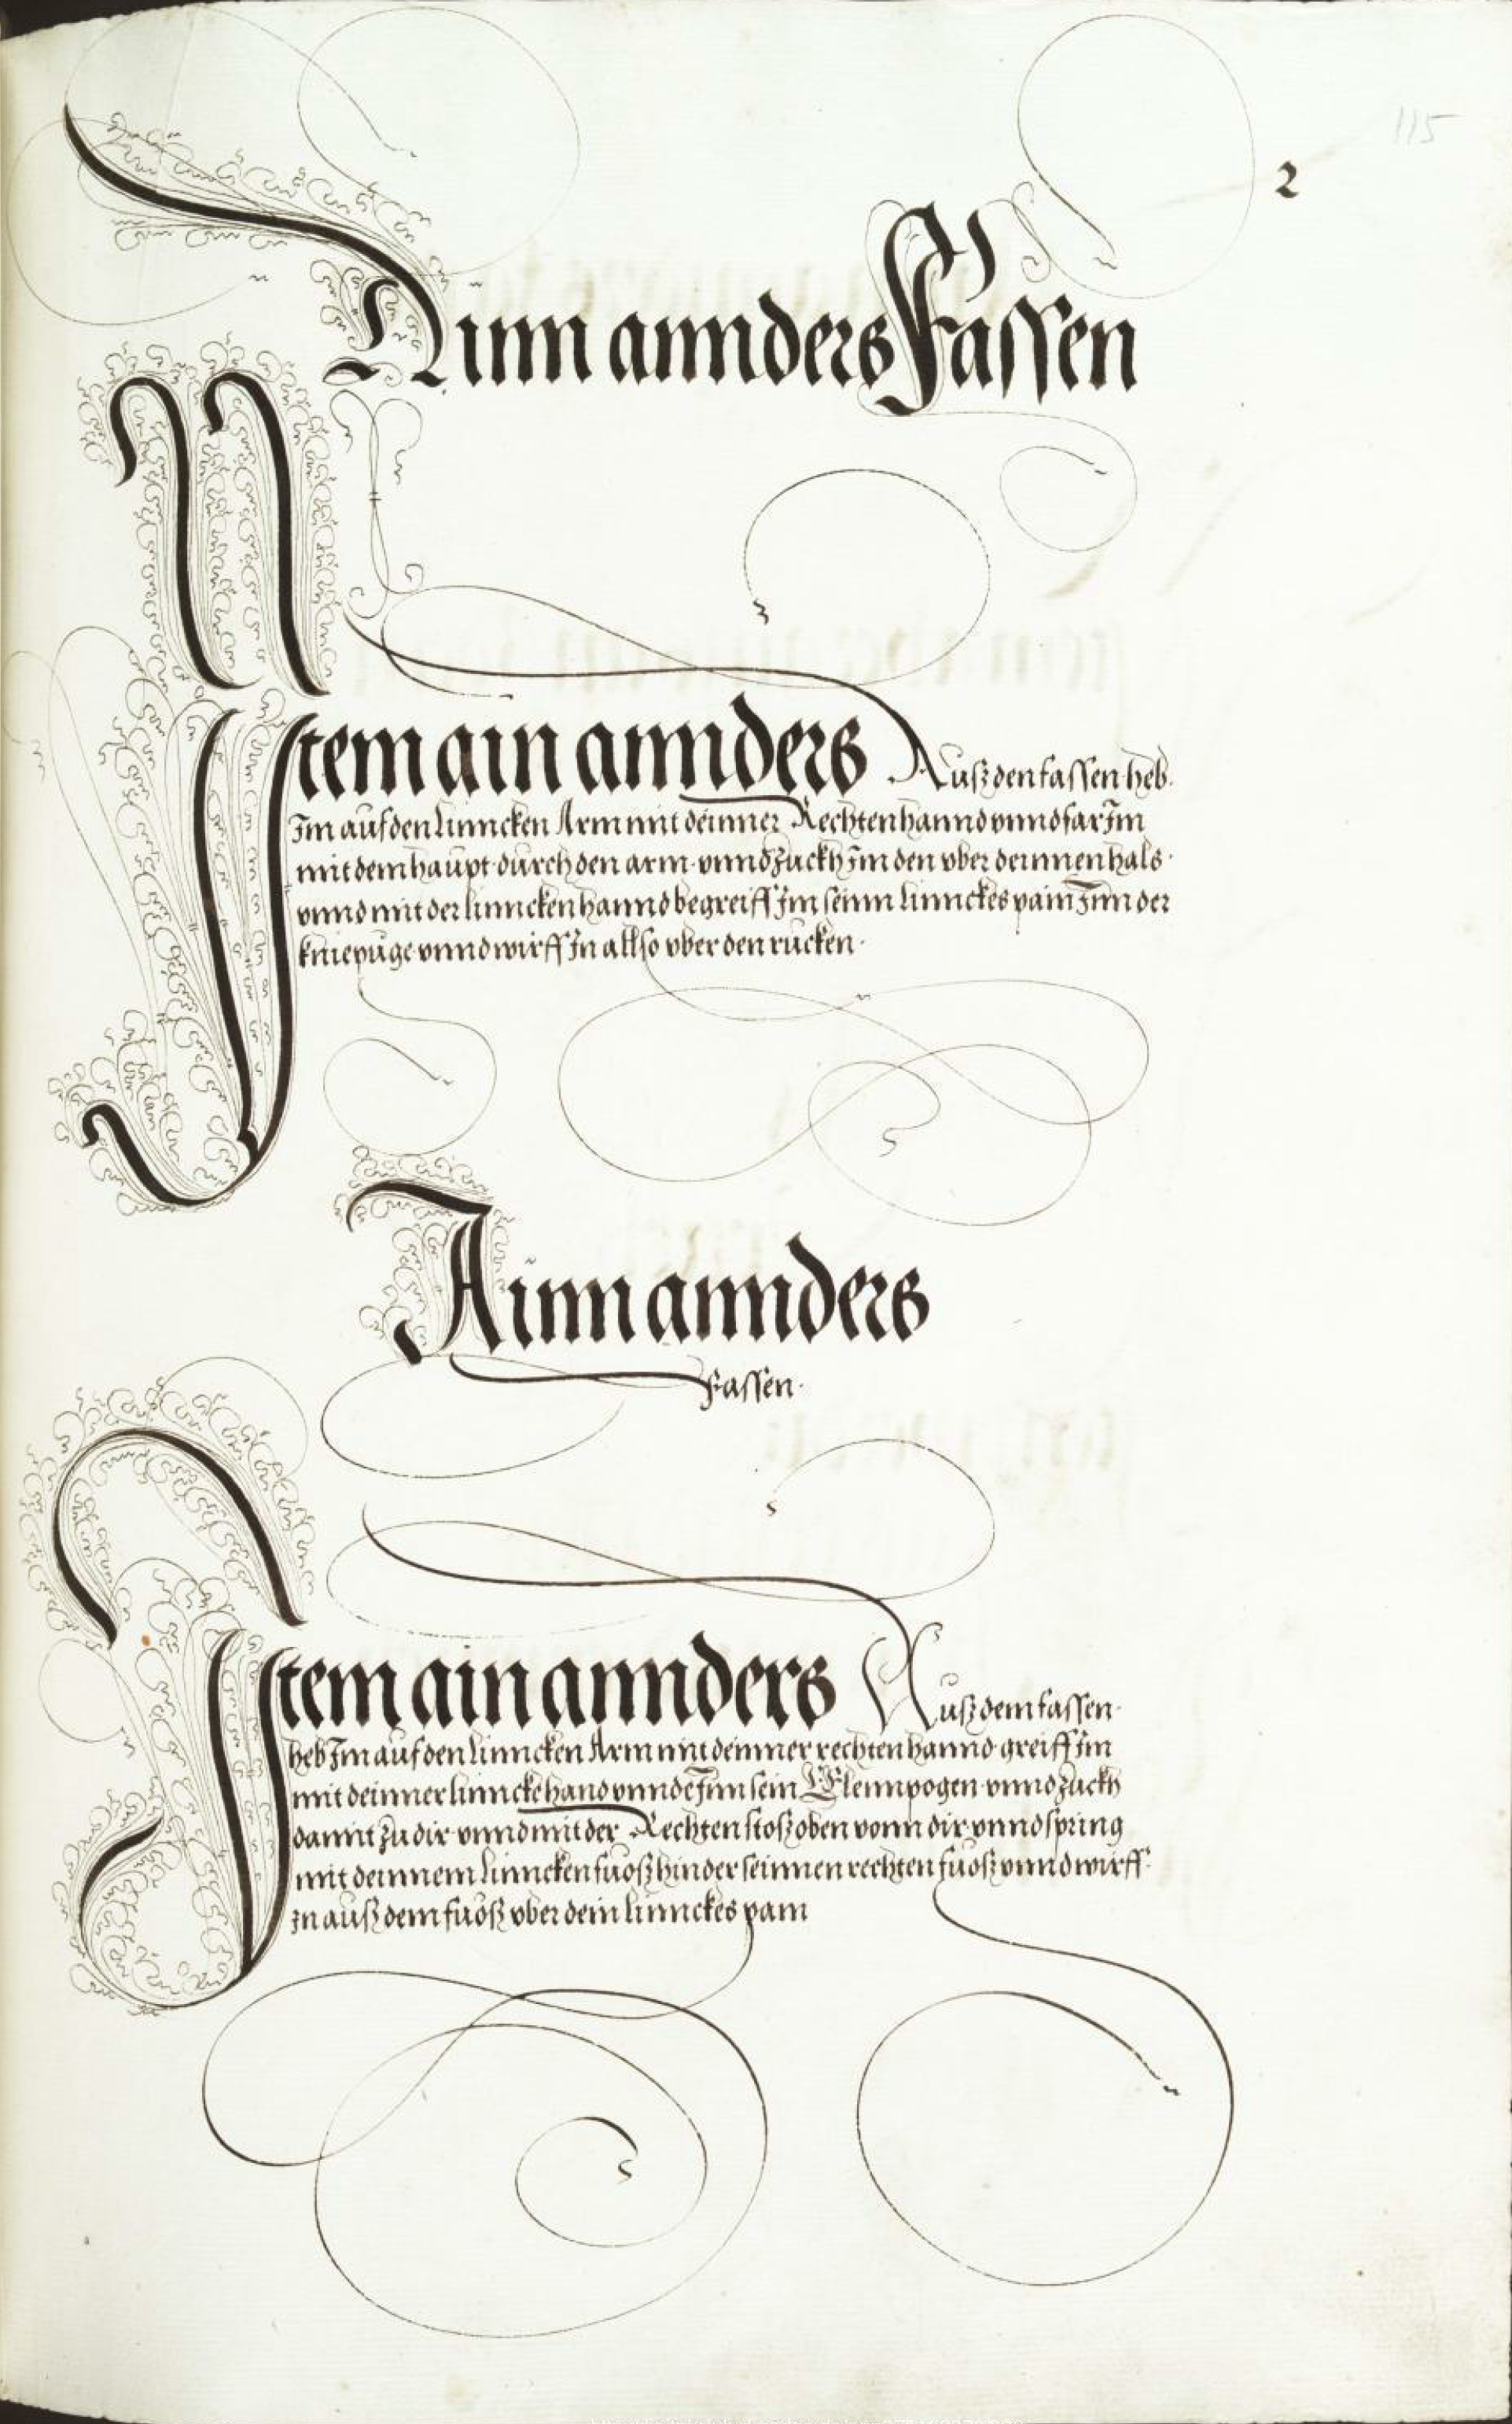 115
2
Ainn annders Fassen
Item ain annders Ausz den fassen heb
Im auf den linncken Arm mit deinner Rechten hannd vnnd far Im
mit dem haupt durch den arm vnnd zuckh im den vber deinnen hals
vnnd mit der linncken hannd begreiff Im seinn linnckes pain Inn der
kniepuge vnnd wirff In allso vber den rucken
Ainn annders
Fassen
Item ain annders Ausz dem fassen
heb Im auf den linncken Arm mit deinner rechten hannd greiff im
mit deinner linncke hand vnnde Inn sein Elennpogen vnnd zuckh
damit zu dir vnnd mit der Rechten stosz oben vonn dir vnnd spring
mit deinnem linncken fuosz hinder seinnen rechten fuosz vnnd wirff
In ausz dem fuosz vber dein linnckes pain